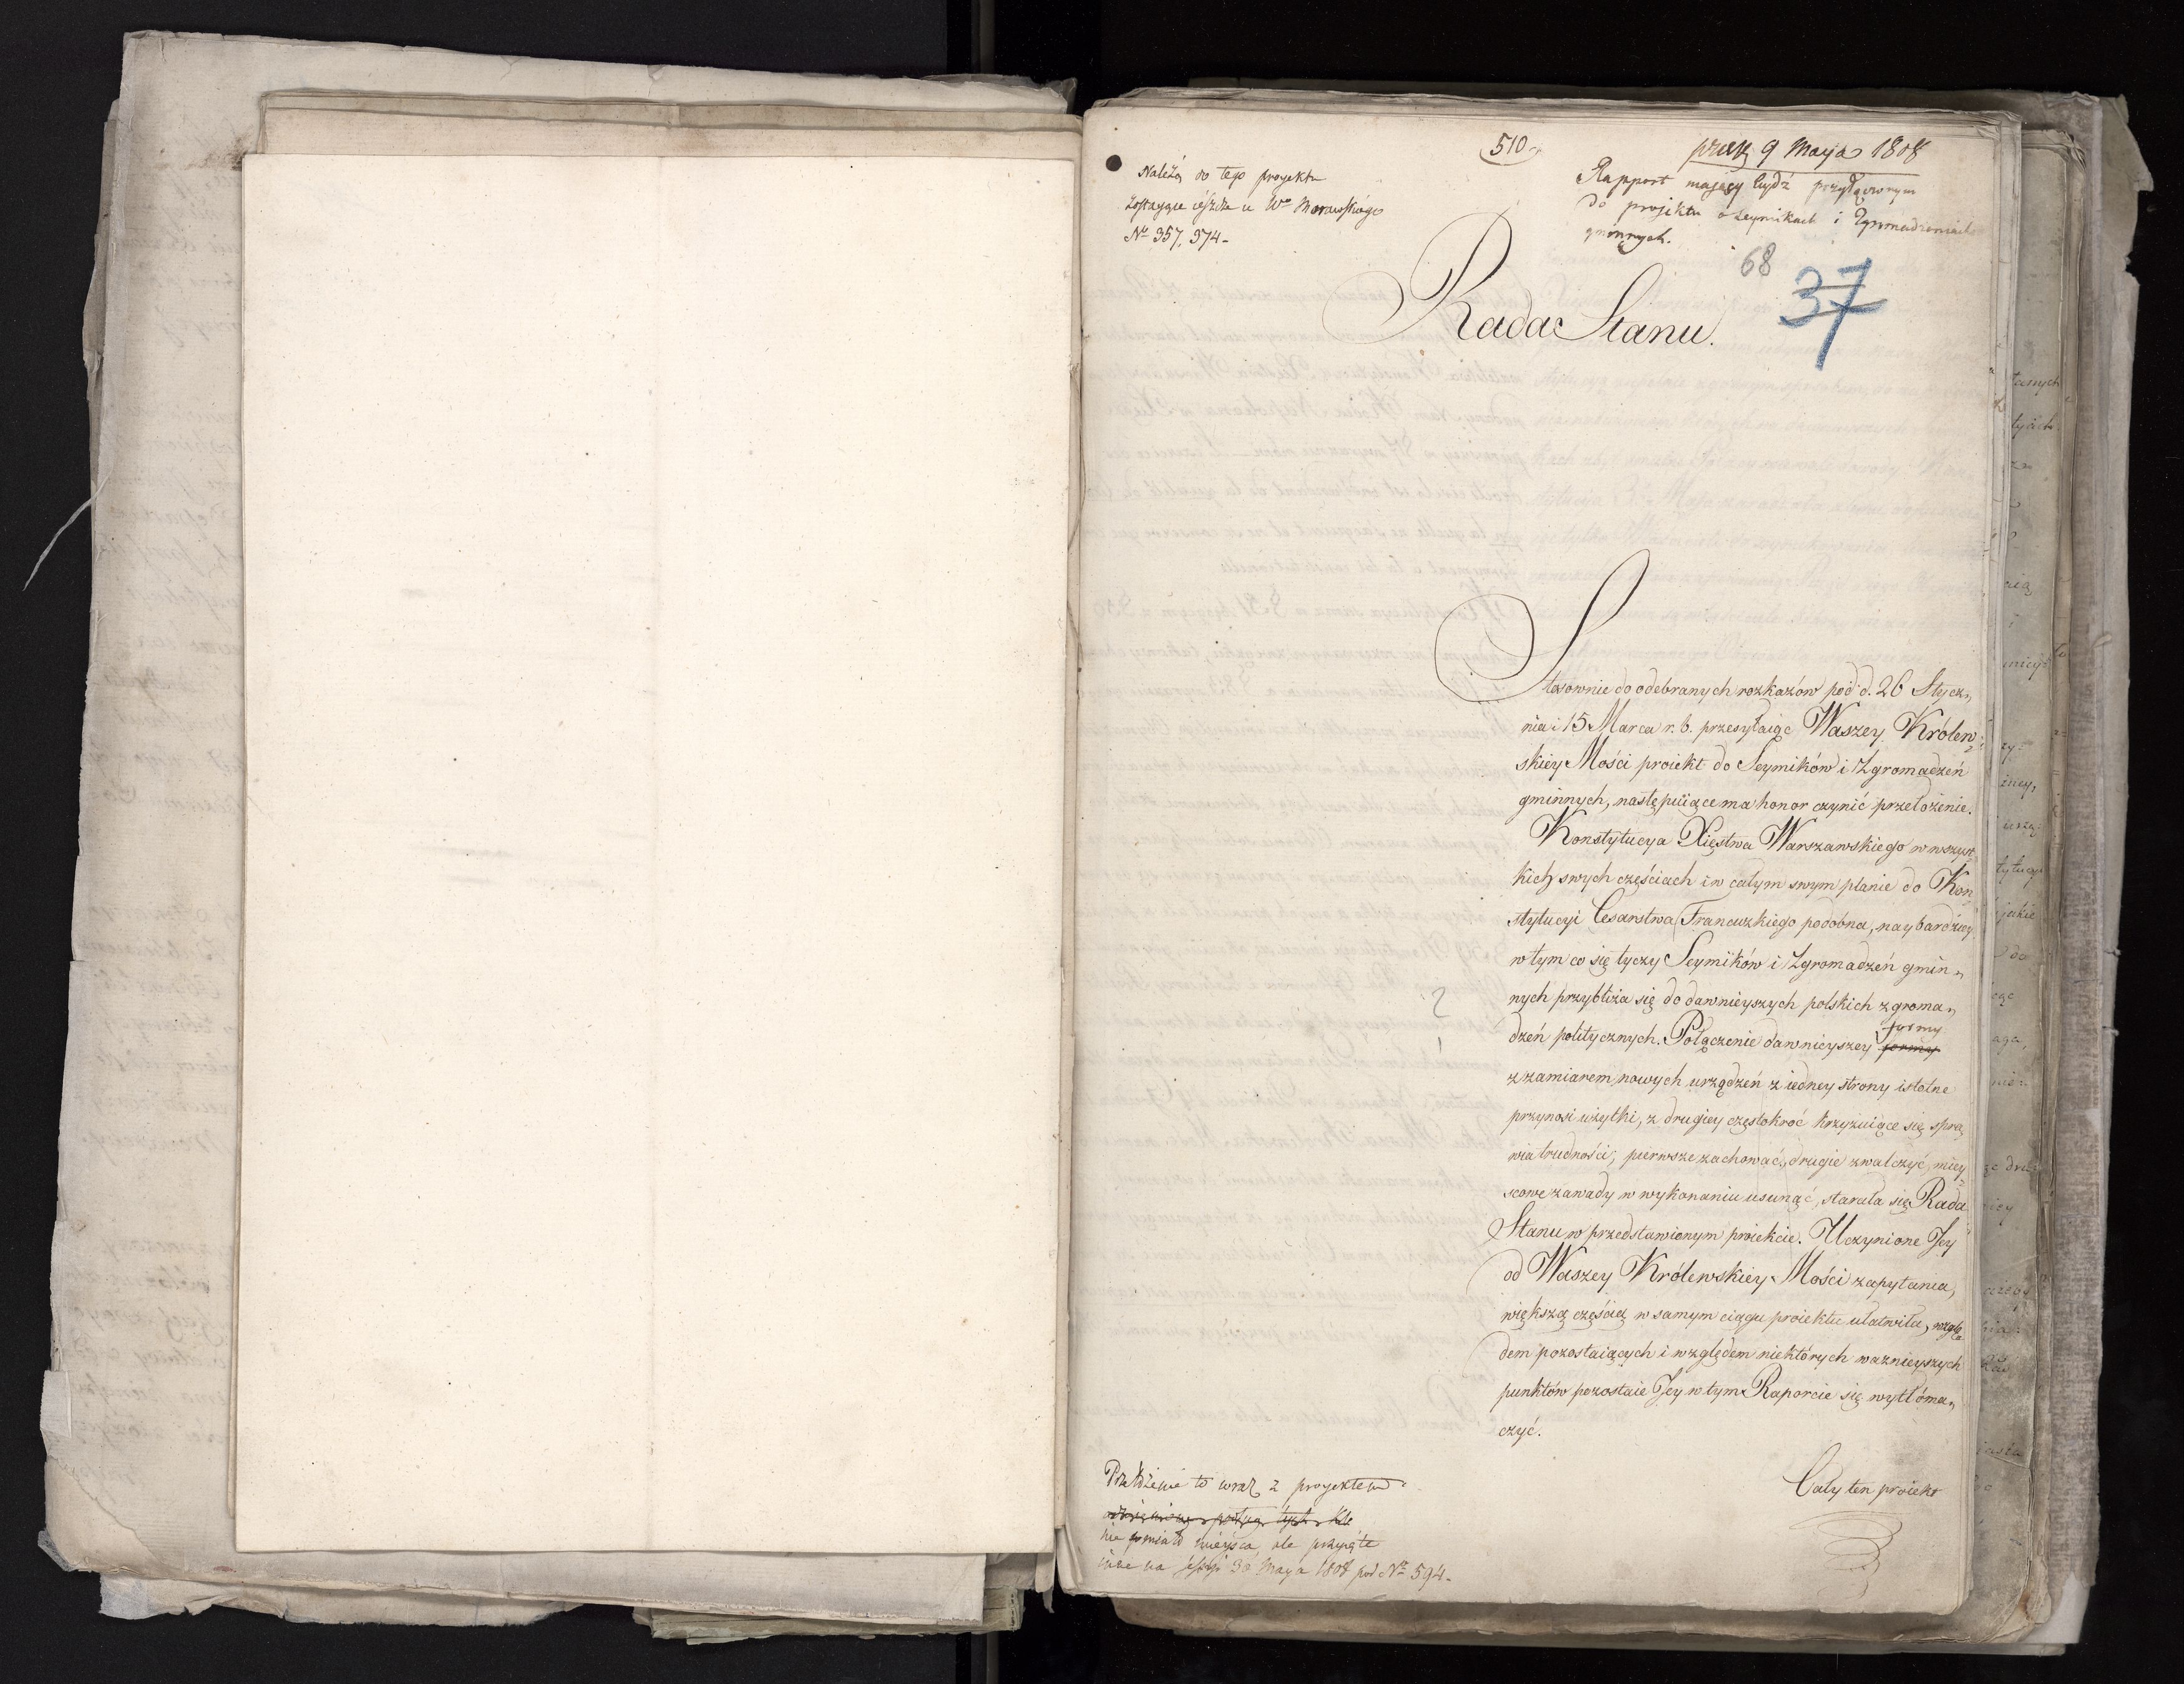 510.
Należą do tego proyektu
zostaiące ieszcze u Wo Morawskiego
No 357, 374.
9 Maja 1808
Rapport mający bydź przyłączonym
do projektu o seymikach i Zgromadzeniach
gminnych.
68
37
Rada Stanu.
Stosownie do odebranych rozkazów pod d. 26 Stycz„
nia i 15 Marca r. b. przesyłaiąc Waszey Królew„
skiey Mości proiekt do Seymików i Zgromadzeń
gminnych, następuiące ma honor czynić przełożenie.
Konstytucya Xięstwa Warszawskiego w wszyst„
kich swych częściach i w całym swym planie do Kon„
stytucyi Cesarstwa Francuzkiego podobna, naybardziey
w tym co się tyczy Seymików i Zgromadzeń gmin„
nych przybliża się do dawnieyszych polskich zgroma„
dzeń politycznych. Połączenie dawnieyszey formy
z zamiarem nowych urządzeń z iedney strony istotne
przynosi użytki, z drugiey częstokroć krzyżuiące się spra„
wia trudności; pierwsze zachować, drugie zwalczyć, miey„
scowe zawady w wykonaniu usunąć, starała się Rada
Stanu w przedstawionym proiekcie. Uczynione Jey
od Waszey Królewskiey Mości zapytania,
większą częścią w samym ciągu proiektu ułatwiła, wzglę„
dem pozostaiących i względem niektórych ważnieyszych
punktów pozostaie Jey w tym Raporcie się wytłóma„
czyć.
Cały ten proiekt
Przełożenie to wraz z proyektem
nie miało mieysca, ale przyięte
inne na sessyi 30 Maya 1808 pod No 594.